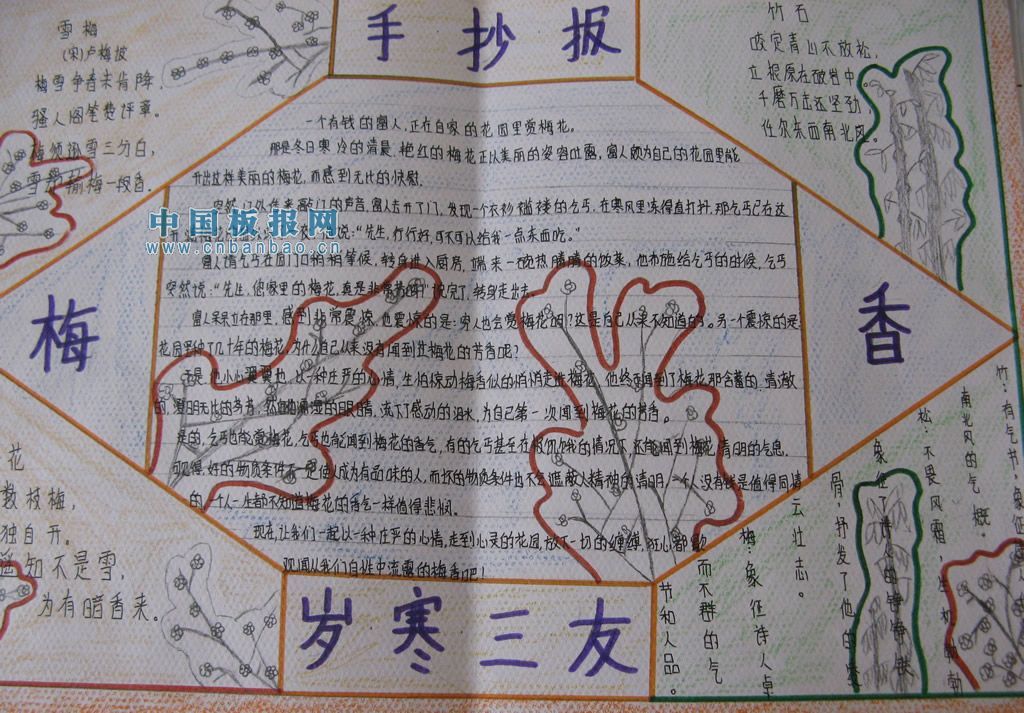 手抄报
雪梅
(宋)卢梅坡
梅雪争春未肯降,
骚人阁笔费评章。
梅须逊雪三分白,
雪却输梅一段香.
竹石
咬定青山不放松,
立根原在破岩中。
千磨万击还坚劲,
任尔东西南北风。
一个有钱的富人,正在自家的花园里赏梅花。
那是冬日寒冷的清晨.艳红的梅花正以美丽的姿容吐露,富人颇为自己的花园里能
开出这样美丽的梅花,而感到无比的快慰.
突然门外传来敲门的声音,富人去开了门,发现一个衣衫褴褛的乞丐,在寒风里冻得直打抖,那乞丐已在这
说:“先生,行行好,可不可以给我一点东西吃。”
富人请乞丐在园门口稍稍等候,转身进入厨房,端来一碗热腾腾的饭菜,他布施给乞丐的时候,乞丐
突然说:“先生,您家里的梅花,真是非常芳香呀!”说完了,转身走出去.
富人呆呆立在那里,感到非常震惊,他震惊的是:穷人也会赏梅花吗?这是自己从来不知道的。另一个震惊的是:
花园里种了几十年的梅花,为什么自己从来没有闻到过梅花的芳香呢?
于是,他小心翼翼地,以一种庄严的心情,生怕惊动梅香似的悄悄走近梅花,他终于闻到了梅花那含蓄的,清澈
的,澄明无比的芬芳,然后他濡湿的眼睛,流下感动的泪水,为自己第一次闻到梅花的芳香。
是的,乞丐也能赏梅花,乞丐也能闻到梅花的香气,有的乞丐甚至在极饥饿的情况下,还能闻到梅花清明的气息.
可见得,好的物质条件不一定使人成为有品味的人,而坏的物质条件也不会遮蔽人精神的清明,一个人没有钱是值得同情
的,一个人一生都不知道梅花的香气一样值得悲悯。
现在,让我们一起以一种庄严的心情,走到心灵的花园,放下一切的缠缚,狂心都歇
观闻从我们自性中流露的梅香吧!
中国板报网
www.cnbanbao.cn
梅
香
花
数枝梅,
独自开。
遥知不是雪,
为有暗香来。
岁寒三友
竹:有气节,象征
南北风的气概。
松:不要风霜,生机勃勃
象征了诗人的铮铮铁
骨,抒发了他的
云壮志。
梅:象征诗人卓
而不群的气
节和人品。